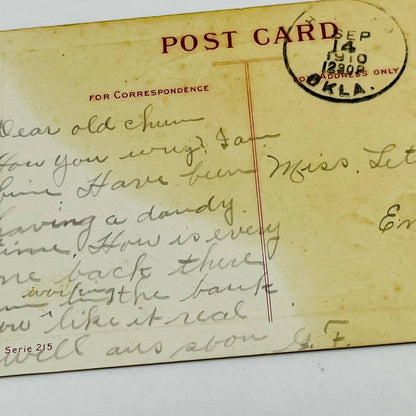 POST CARD
SEP
14
1910
1230P
OKLA.
FOR CORRESPONDENCE
FOR ADDRESS ONLY
Dear old chum
How you wrig? I am
fine Have been
having a dandy
time, How is every
one back there
working the bank
now like it real
well ans soon G. F.
Miss. Let
En
Serie 215